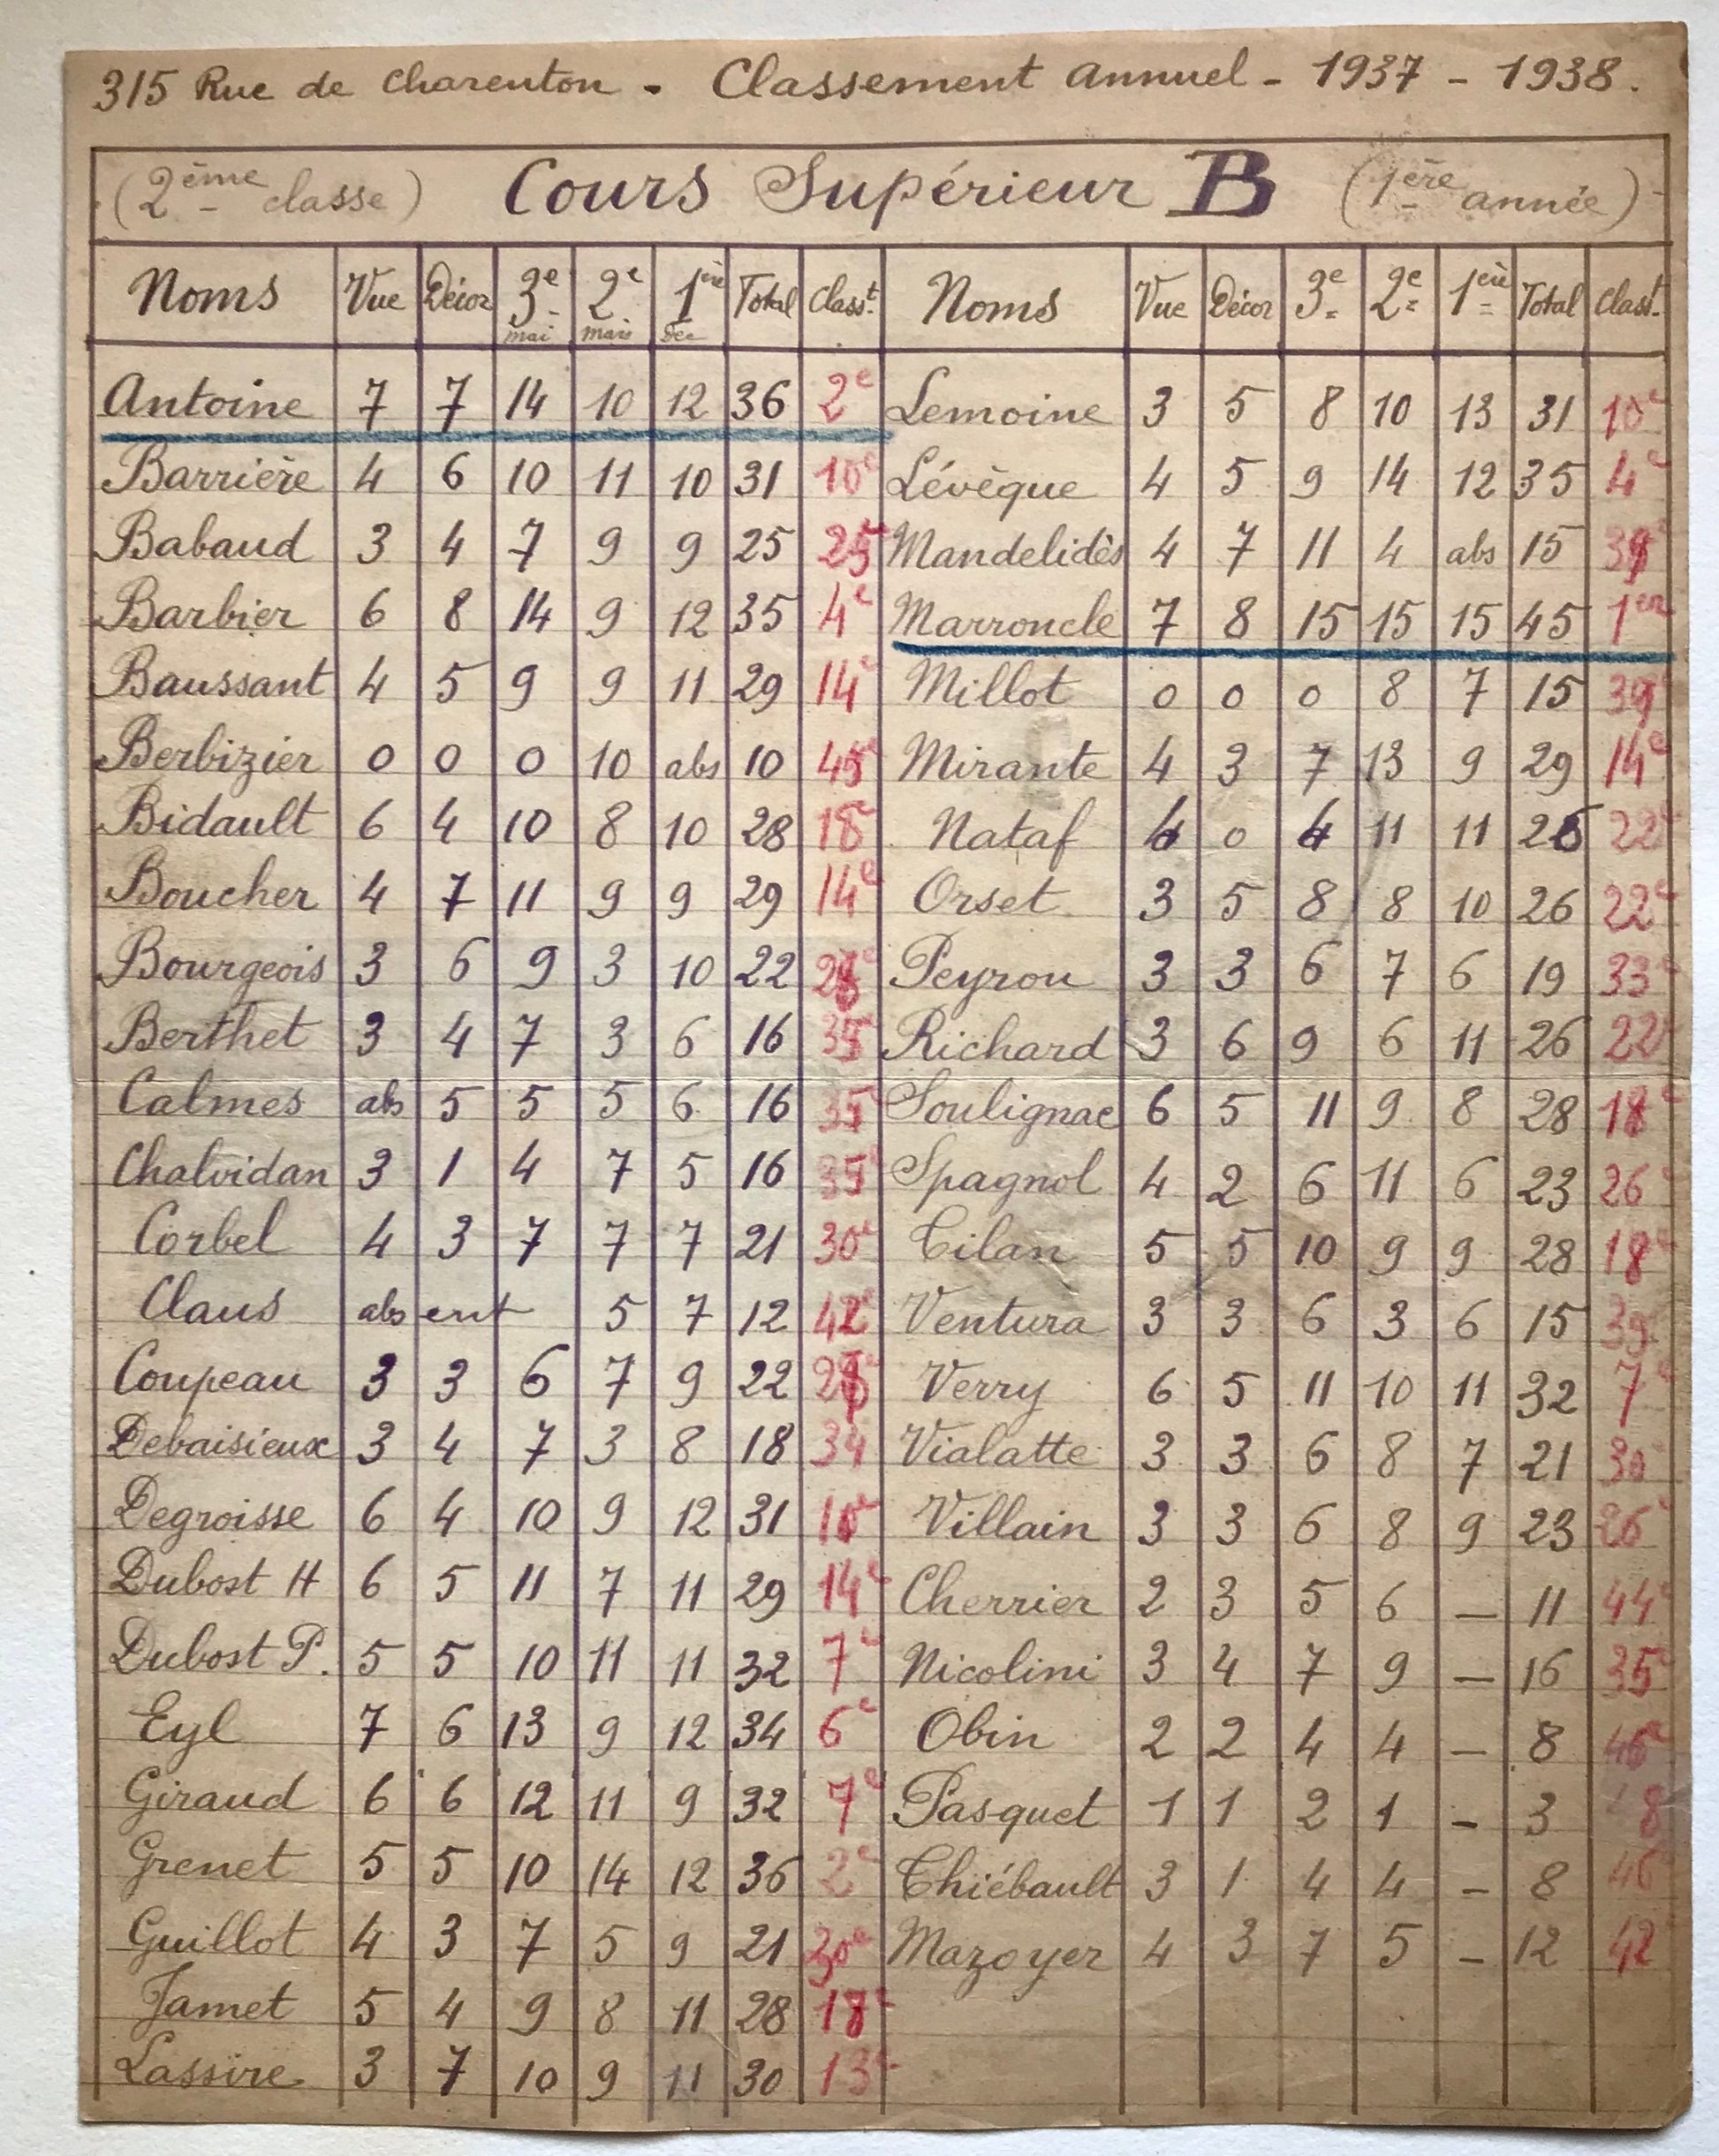 315 Rue de Charenton - Classement annuel - 1937 - 1938.
(2ème classe) Cours Supérieur B (1ère année)
Noms Vue Décor 3e mai 2e mars 1ère Déc Total Classt. Noms Vue Décor 3e 2e 1ère Total Clast.
Antoine 7 7 14 10 12 36 2e Lemoine 3 5 8 10 13 31 10e
Barrière 4 6 10 11 10 31 10e Lévèque 4 5 9 14 12 35 4e
Babaud 3 4 7 9 9 25 25 Mandelidès 4 7 11 4 abs 15 39e
Barbier 6 8 14 9 12 35 4e Marroncle 7 8 15 15 15 45 1er
Baussant 4 5 9 9 11 29 14e Millot 0 0 0 8 7 15 39e
Berbizier 0 0 0 10 abs 10 45e Mirante 4 3 7 13 9 29 14e
Bidault 6 4 10 8 10 28 18e Nataf 4 0 4 11 11 26 22e
Boucher 4 7 11 9 9 29 14e Orset 3 5 8 8 10 26 22e
Bourgeois 3 6 9 3 10 22 28e Peyrou 3 3 6 7 6 19 33e
Berthet 3 4 7 3 6 16 35e Richard 3 6 9 6 11 26 22e
Calmes abs 5 5 5 6 16 35e Soulignac 6 5 11 9 8 28 18e
Chalvidan 3 1 4 7 5 16 35e Spagnol 4 2 6 11 6 23 26e
Corbel 4 3 7 7 7 21 30e Tilan 5 5 10 9 9 28 18e
Claus absent 5 7 12 42e Ventura 3 3 6 3 6 15 39e
Coupeau 3 3 6 7 9 22 28e Verry 6 5 11 10 11 32 7e
Debaisieux 3 4 7 3 8 18 34 Vialatte 3 3 6 8 7 21 30
Degroisse 6 4 10 9 12 31 10e Villain 3 3 6 8 9 23 26e
Dubost H 6 5 11 7 11 29 14e Cherrier 2 3 5 6 — 11 44e
Dubost P. 5 5 10 11 11 32 7e Nicolini 3 4 7 9 — 16 35e
Eyl 7 6 13 9 12 34 6e Obin 2 2 4 4 — 8 46e
Giraud 6 6 12 11 9 32 7e Pasquet 1 1 2 1 - 3 48
Grenet 5 5 10 14 12 36 2e Thiébault 3 1 4 4 - 8 46
Guillot 4 3 7 5 9 21 30e Mazoyer 4 3 7 5 - 12 42
Jamet 5 4 9 8 11 28 18e
Lassire 3 7 10 9 11 30 13e